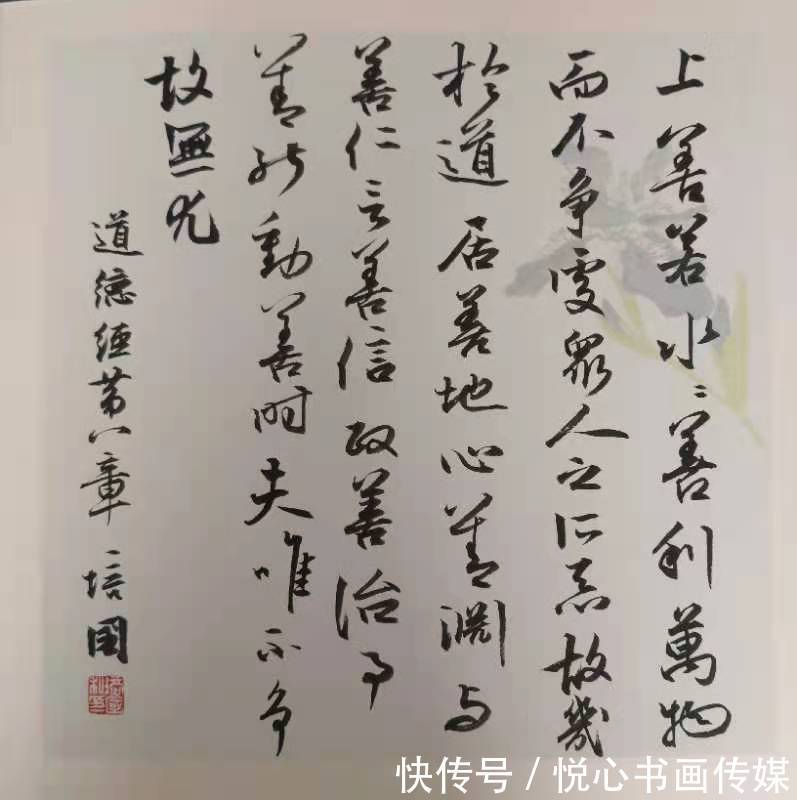 上善若水〻善利萬物
而不争處衆人之所惡故幾
於道居善地心善渊與
善仁言善信政善治事
善能動善时夫唯不争
故無尤
道德經第八章 培國
快传号 / 悦心书画传媒